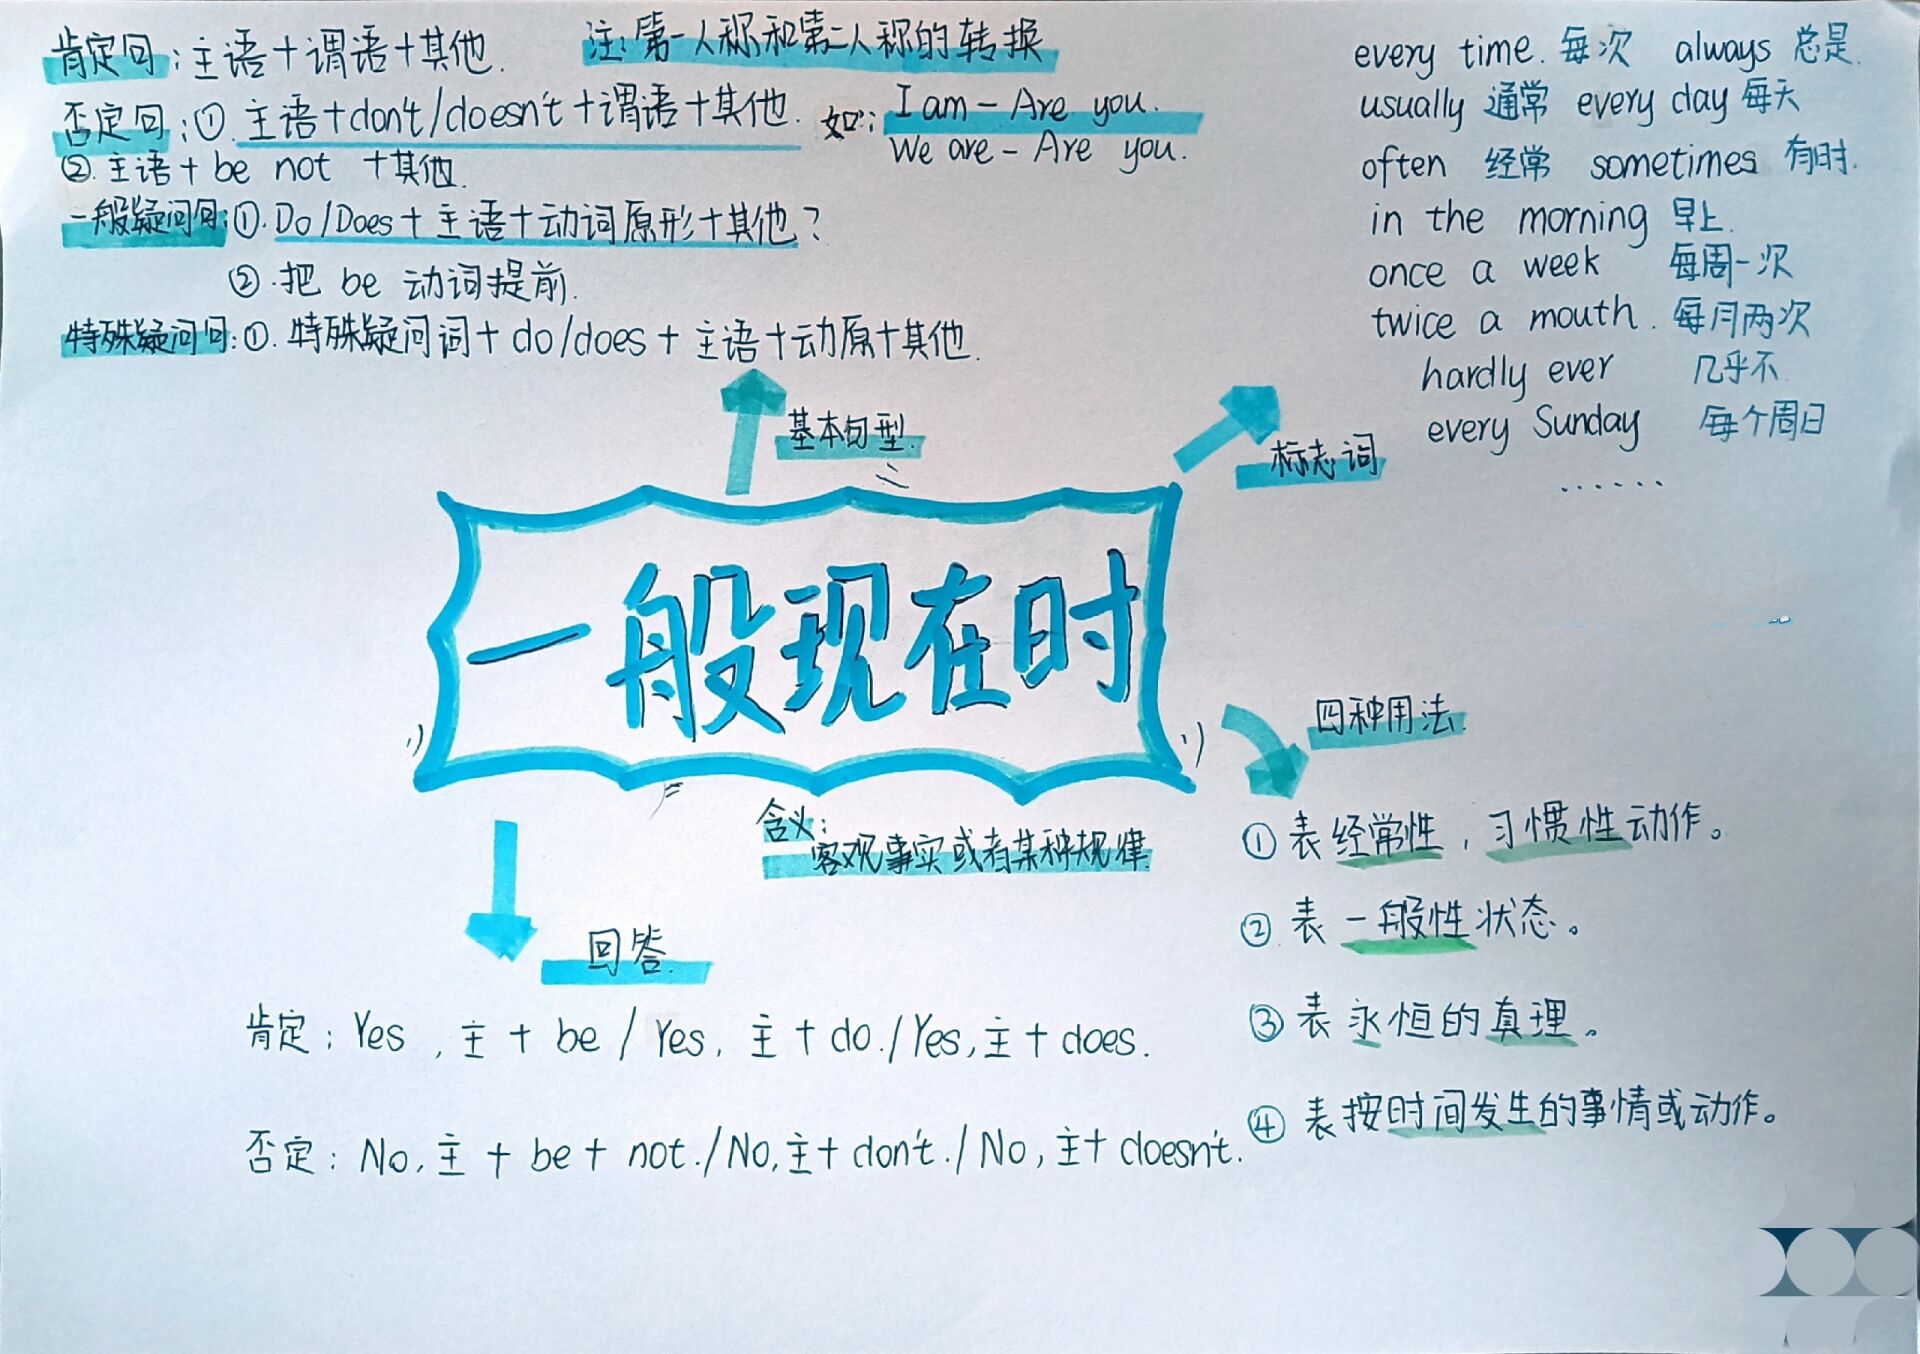 肯定句：主语+谓语+其他.
注：第一人称和第二人称的转换
否定句：①.主语+don't/doesn't+谓语+其他.
如：I am - Are you.
We are - Are you.
②.主语+be not +其他.
一般疑问句：①.Do/Does+主语+动词原形+其他？
②.把 be 动词提前.
特殊疑问句：①.特殊疑问词+do/does+主语+动原+其他.
every time.每次 always 总是.
usually 通常 every day 每天
often 经常 sometimes 有时.
in the morning 早上.
once a week 每周一次
twice a mouth.每月两次
hardly ever 几乎不
every Sunday 每个周日
......
基本句型.
标志词
一般现在时
四种用法.
①表经常性，习惯性动作。
②.表一般性状态。
③表永恒的真理。
④表按时间发生的事情或动作。
含义：
客观事实或者某种规律.
回答.
肯定：Yes，主+be/Yes，主+do./Yes,主+does.
否定：No,主+be+not./No,主+don't./No,主+doesn't.